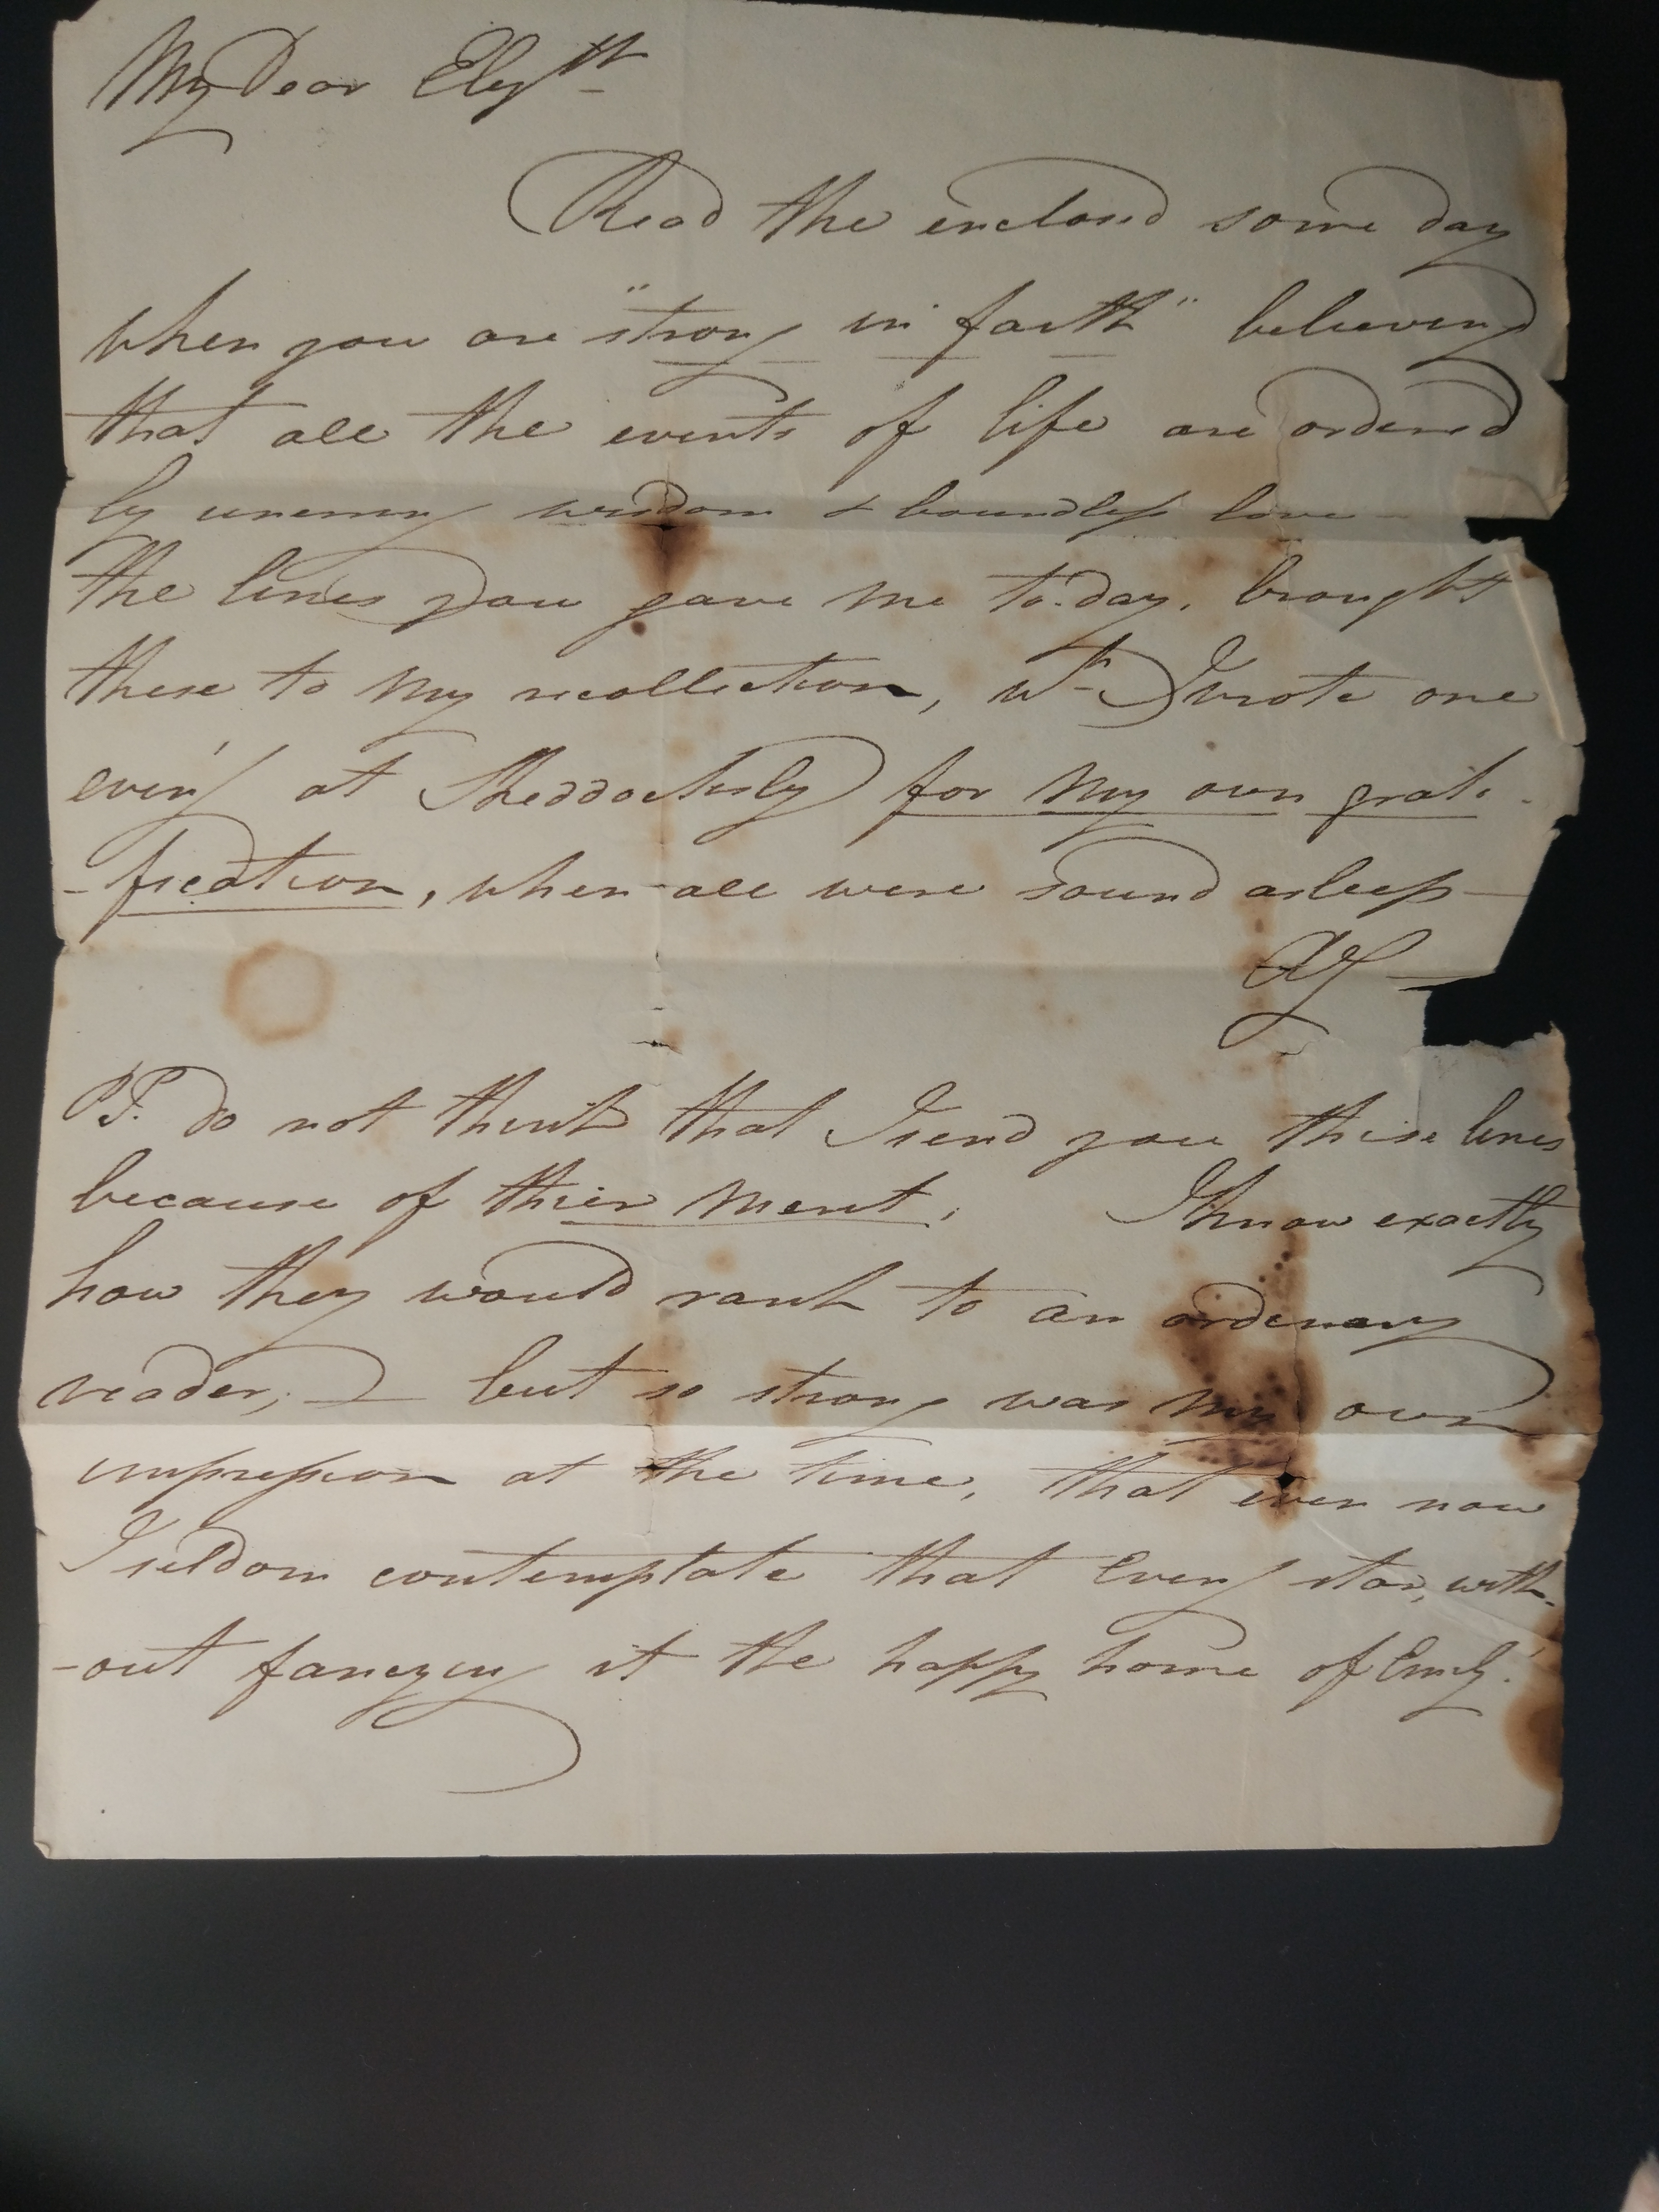 My Dear Elizth
Read the enclosed some day
when you are "strong in faith" believing
that all the events of life are ordered
by unerring wisdom & boundless love
the lines you gave me to-day, brought
these to my recollection, wh I wrote one
even'g at for my own grati-
-fication, when all were sound asleep—
PS. do not think that I send you these lines
because of their merit. I know exactly
how they would rank to an ordinary
reader, — but so strong was my own
impression at the time, that even now
I seldom contemplate that Eveng star, with-
-out fancying it the happy home of Emily!